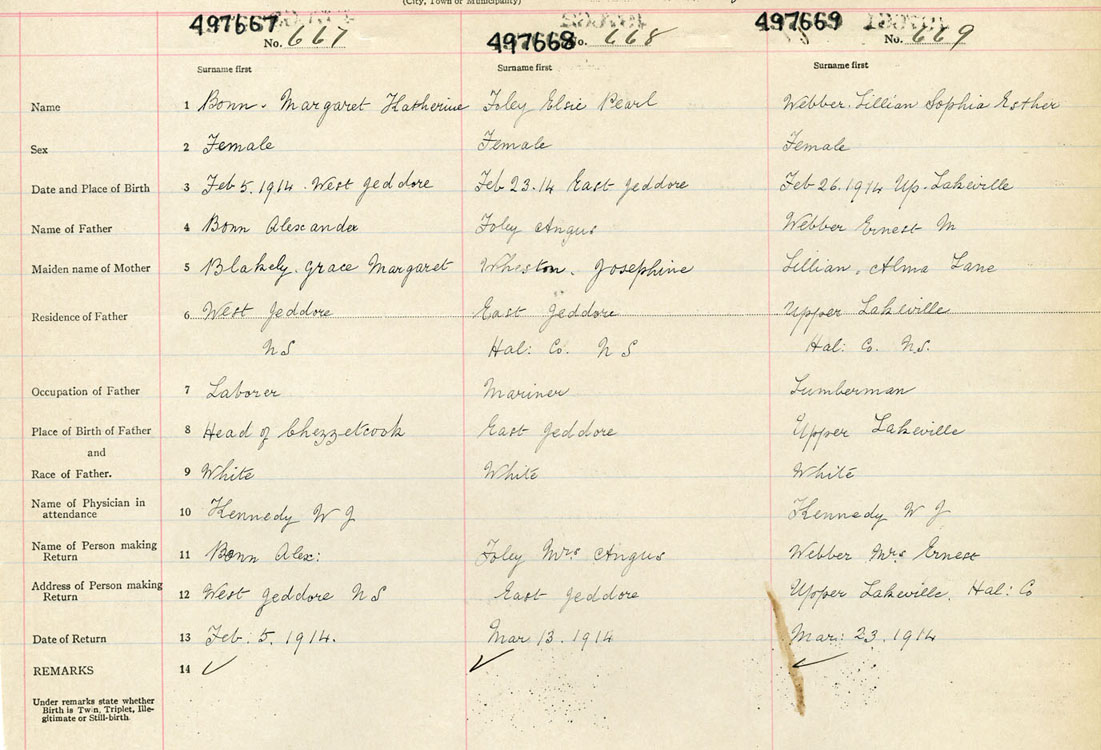 (City, Town or Municipality)
497667 497668 497669
No. 667 No. 668 No. 669
Surname first Surname first Surname first
Name 1 Bonn. Margaret Katherine Foley Elsie Pearl Webber. Lillian Sophia Esther
Sex 2 Female Female Female
Date and Place of Birth 3 Feb 5. 1914. West Jeddore Feb 23. 14 East Jeddore Feb 26. 1914 Up. Lakeville
Name of Father 4 Bonn Alexander Foley Angus Webber Ernest M
Maiden name of Mother 5 Blakely. Grace Margaret Wheston. Josephine Lillian. Alma Lane
Residence of Father 6 West Jeddore East Jeddore Upper Lakeville
NS Hal: Co. N S Hal: Co. N.S.
Occupation of Father 7 Laborer Mariner Lumberman
Place of Birth of Father 8 Head of Chezzetcook East Jeddore Upper Lakeville
and
Race of Father. 9 White White White
Name of Physician in
attendance 10 Kennedy W J Kennedy W J
Name of Person making
Return 11 Bonn Alex: Foley Mrs Angus Webber Mrs Ernest
Address of Person making
Return 12 West Jeddore N S East Jeddore Upper Lakeville. Hal: Co
Date of Return 13 Feb. 5. 1914. Mar 13. 1914 Mar: 23. 1914
REMARKS 14 ✓ ✓ ✓
Under remarks state whether
Birth is Twin, Triplet, Ille-
gitimate or Still-birth